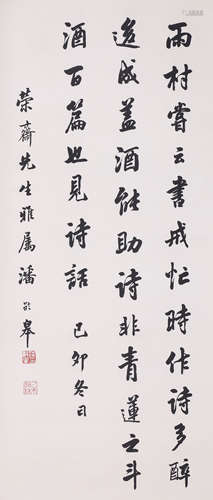 雨村嘗云書成忙時作詩多醉
後成蓋酒能助詩非青蓮之斗
酒百篇也見詩話 己卯冬日
榮齋先生雅属 潘齡皋